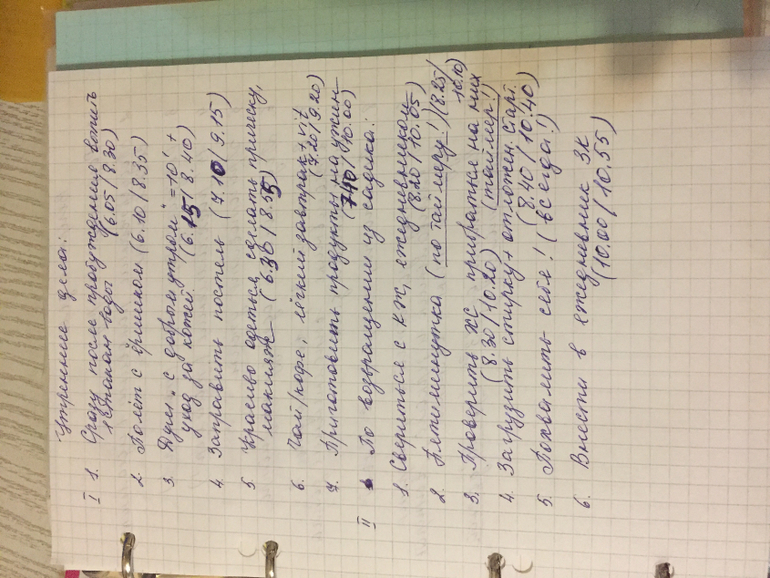 Утренние дела:
I 1. Сразу после пробуждения выпить
стакан воды (6.05/8.30)
2. Полёт с ёршиком (6.10/8.35)
3. Душ „с добрым утром" =10' +
уход за кожей (6.15/8.40)
4. Заправить постель (7.10/9.15)
5. Красиво одеться, сделать прическу,
макияж (6.30/8.55)
6. Чай/кофе, лёгкий завтрак + vit
(7.20/9.20)
7. Приготовить продукты на ужин
(7.40/10.00)
II По возвращении из садика:
1. Свериться с КЖ, ежедневником
(8.20/10.05)
2. Пятиминутка (по таймеру!) (8.25/
10.10)
3. Проверить ЖС, прибраться на них
(8.30/10.20) (таймер!)
4. Загрузить стирку + отложен. старт
(8.40/10.40)
5. Похвалить себя! (всегда!)
6. Внести в ежедневник ЗК
(10.00/10.55)